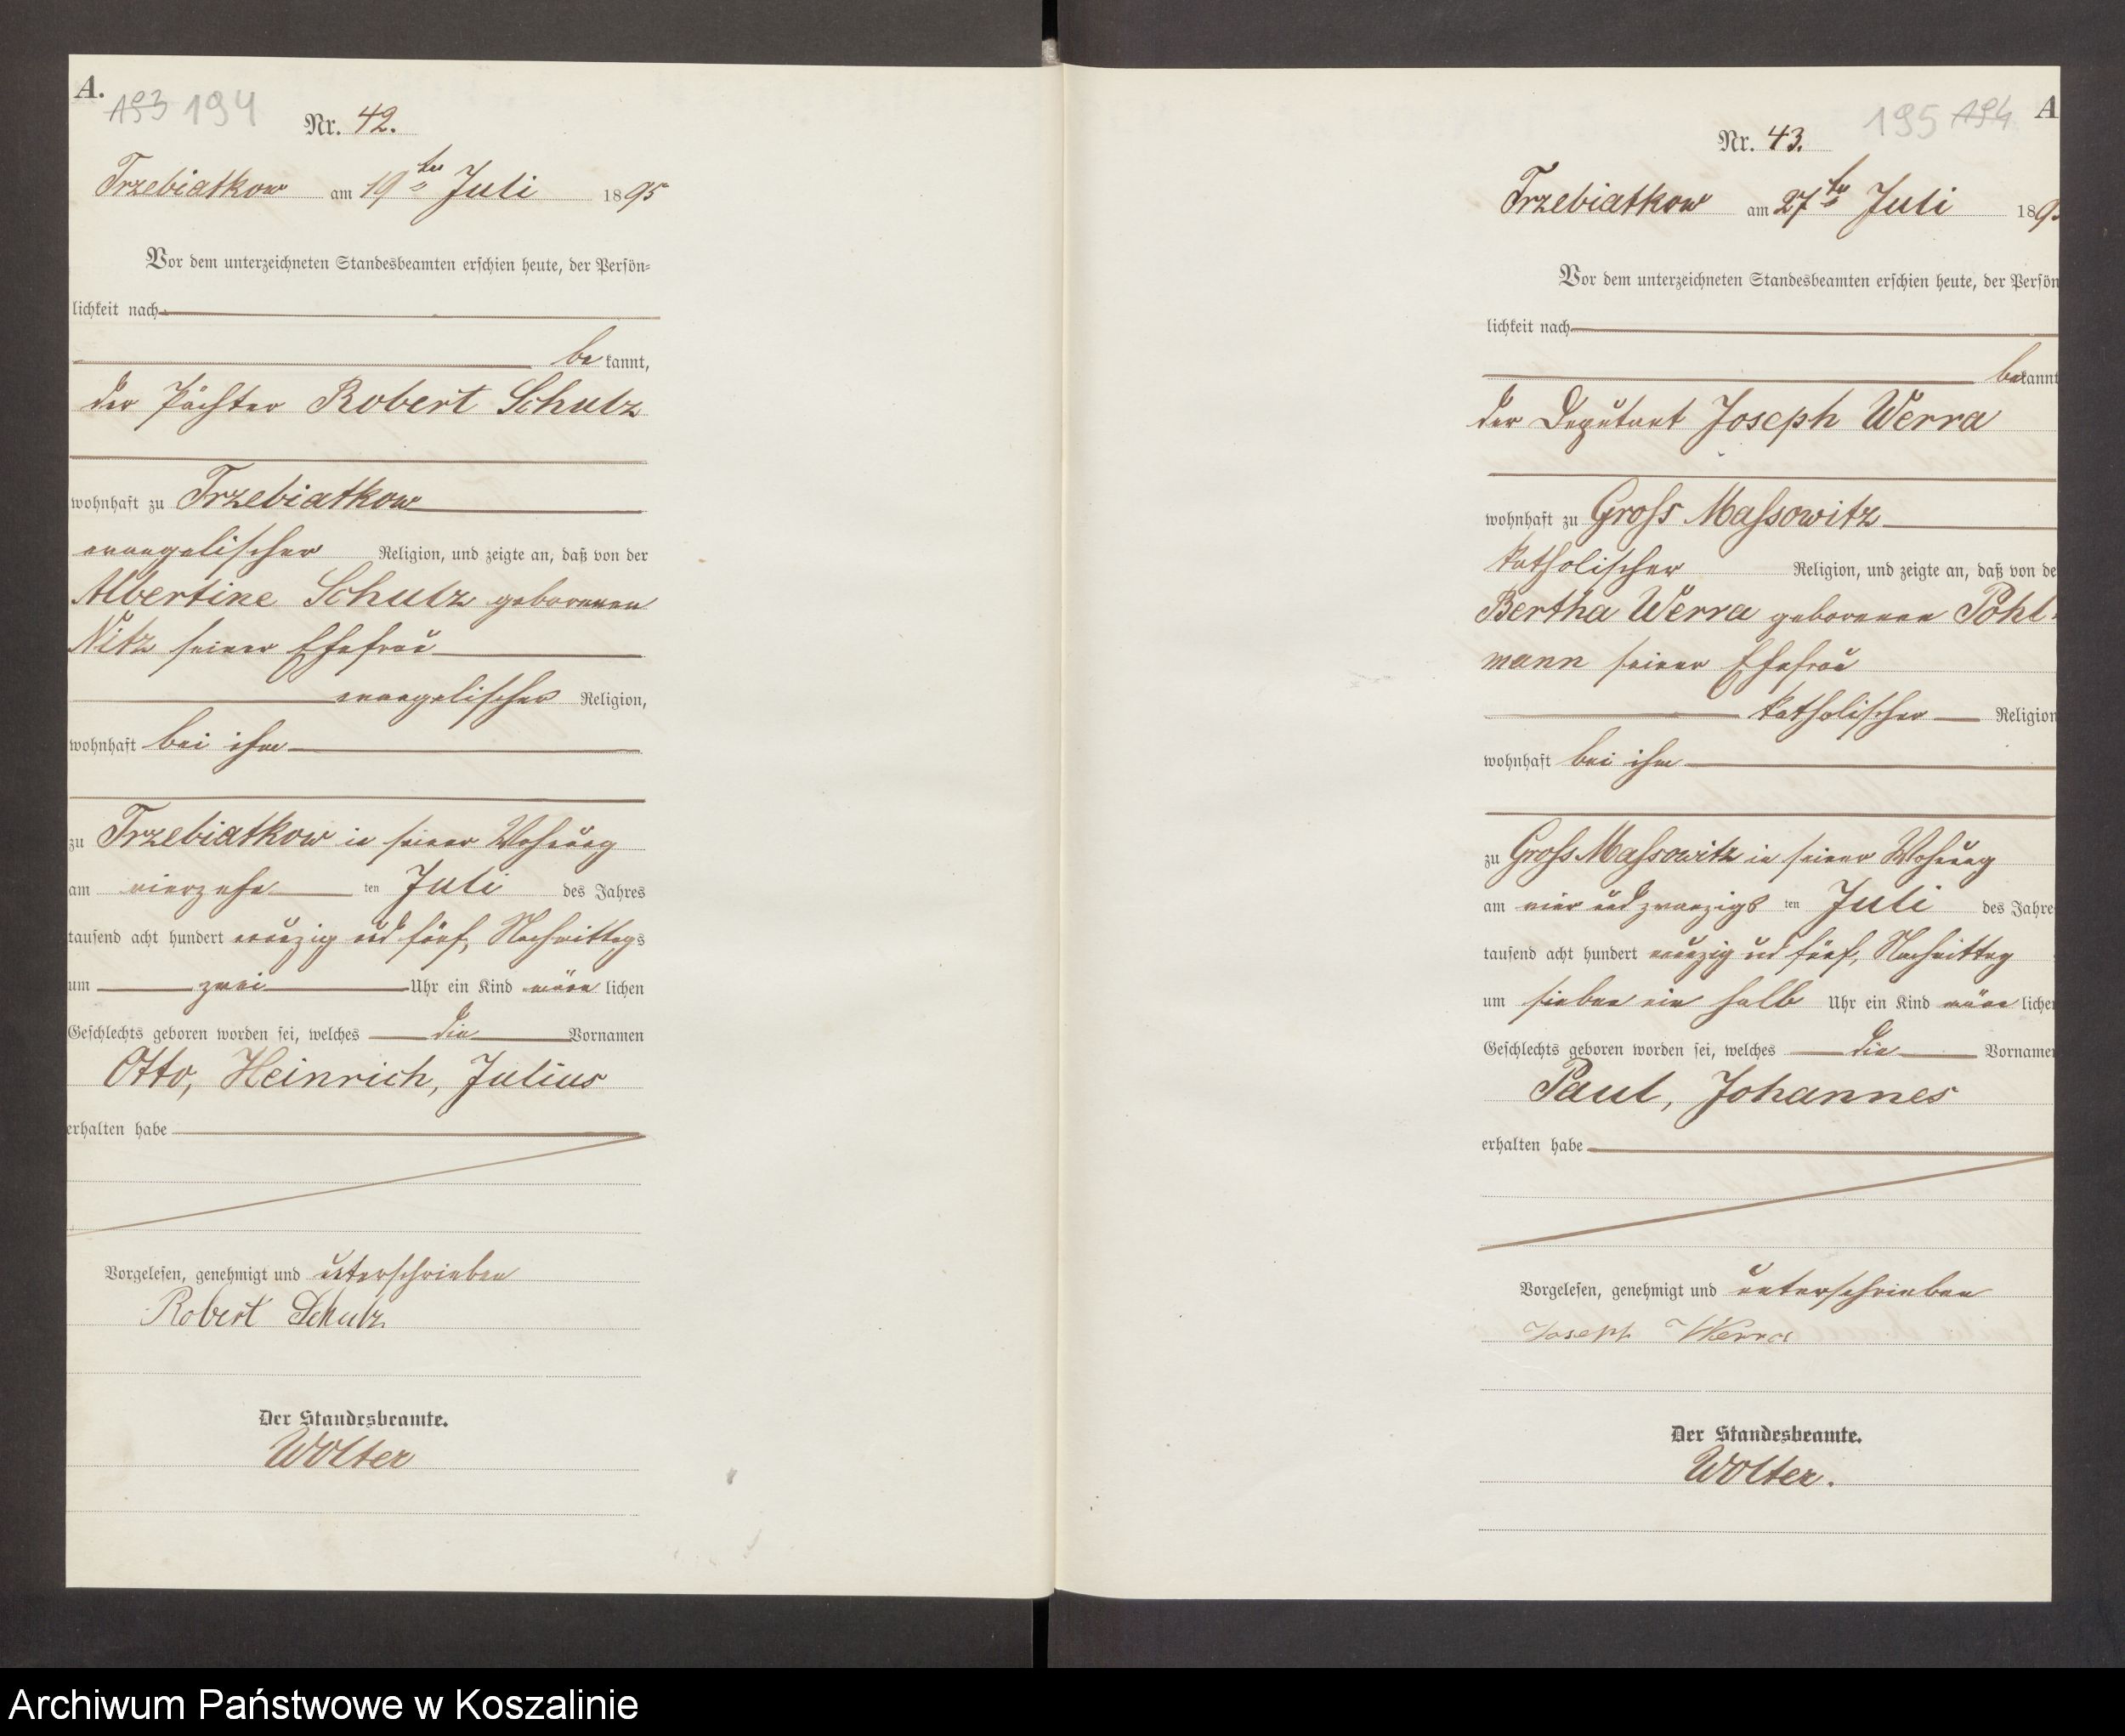 A.
193 194
Nr. 42.
Trzebiatkow am 19ten Juli 1895
Vor dem unterzeichneten Standesbeamten erschien heute, der Persön=
lichkeit nach
be kannt,
der Pächter Robert Schulz
wohnhaft zu Trzebiatkow
evangelischer Religion, und zeigte an, daß von der
Albertine Schulz geborenen
Nitz seiner Ehefrau
evangelischer Religion,
wohnhaft bei ihm
zu Trzebiatkow in seiner Wohnung
am vierzehn ten Juli des Jahres
tausend acht hundert neunzig und fünf, Nachmittags
um zwei Uhr ein Kind männ lichen
Geschlechts geboren worden sei, welches die Vornamen
Otto, Heinrich, Julius
erhalten habe
Vorgelesen, genehmigt und unterschrieben
Robert Schulz
Der Standesbeamte.
Wolter
A
195 194
Nr. 43.
Trzebiatkow am 27ten Juli 189
Vor dem unterzeichneten Standesbeamten erschien heute, der Persön
lichkeit nach
bekannt
der Deputant Joseph Werra
wohnhaft zu Gross Massowitz
katholischer Religion, und zeigte an, daß von de
Bertha Werra geborenen Pohl=
mann seiner Ehefrau
katholischer Religion
wohnhaft bei ihm
zu Gross Massowitz in seiner Wohnung
am vier und zwanzigs ten Juli des Jahre
tausend acht hundert neunzig und fünf, Nachmittag
um sieben ein halb Uhr ein Kind männ lichen
Geschlechts geboren worden sei, welches die Vornamen
Paul, Johannes
erhalten habe
Vorgelesen, genehmigt und unterschrieben
Joseph Werra
Der Standesbeamte.
Wolter.
Archiwum Państwowe w Koszalinie